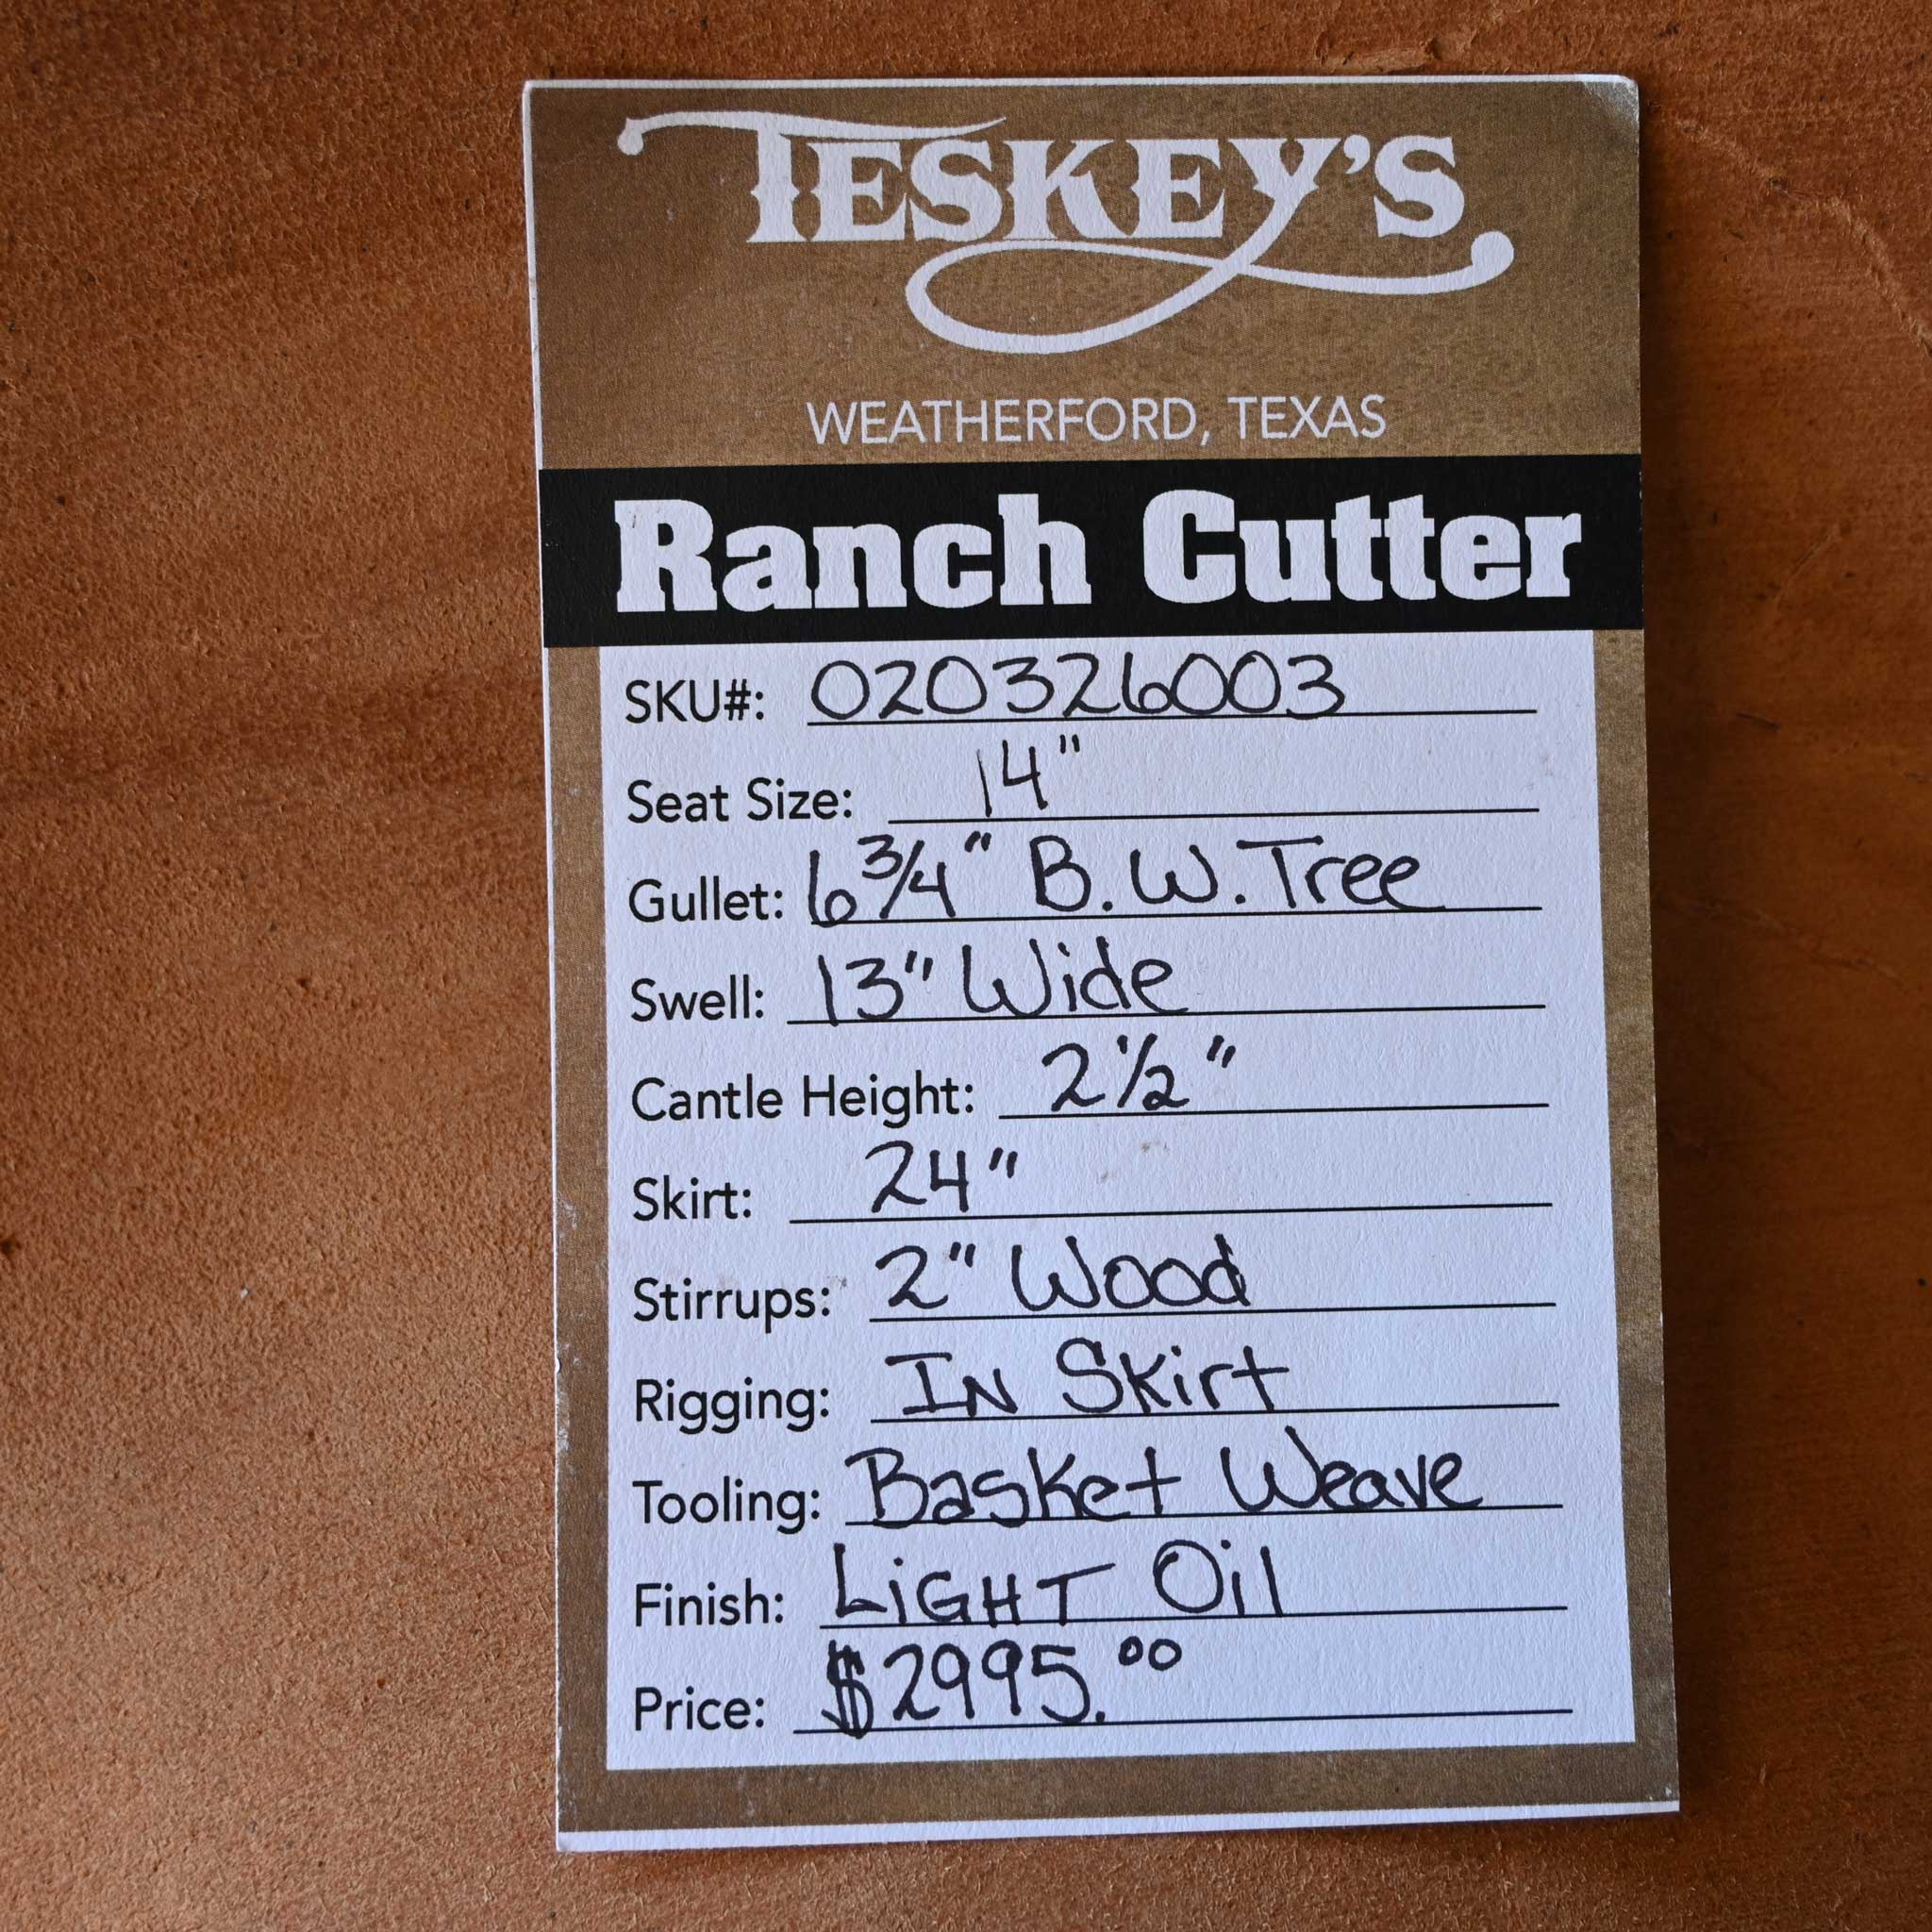 TESKEY'S
WEATHERFORD, TEXAS
Ranch Cutter
SKU#: 020326003
Seat Size: 14"
Gullet: 6 3/4" B.W. Tree
Swell: 13" Wide
Cantle Height: 2 1/2"
Skirt: 24"
Stirrups: 2" Wood
Rigging: IN Skirt
Tooling: Basket Weave
Finish: LiGHT Oil
Price: $2995.00